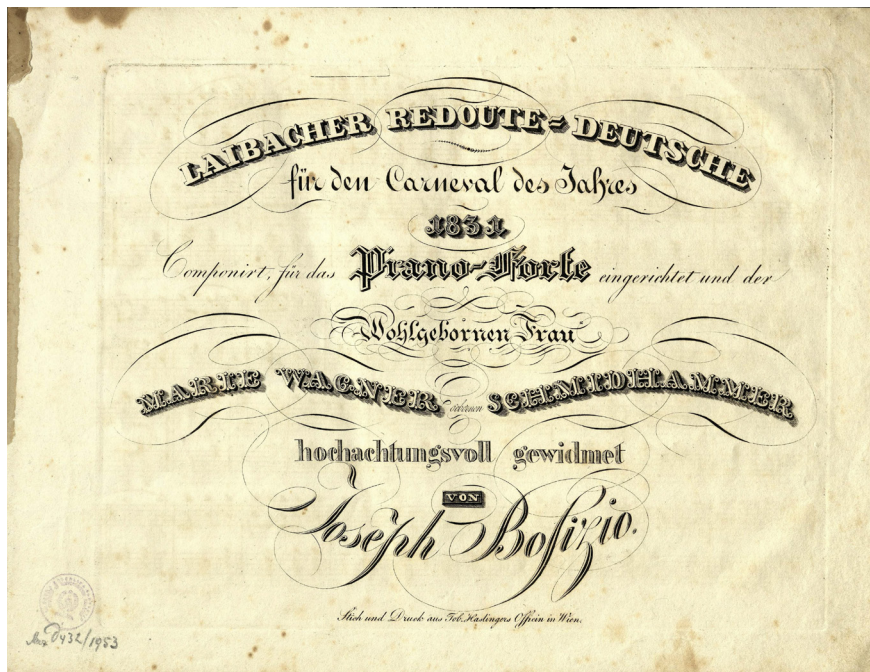 LAIBACHER REDOUTE=DEUTSCHE
für den Carneval des Jahres
1831
Componirt, für das Piano-Forte eingerichtet und der
Wohlgebornen Frau
MARIE WAGNER gebornen SCHMIDHAMMER
hochachtungsvoll gewidmet
VON
Joseph Bosizio.
Stich und Druck aus Tob. Haslingers Officin in Wien.
432/1953